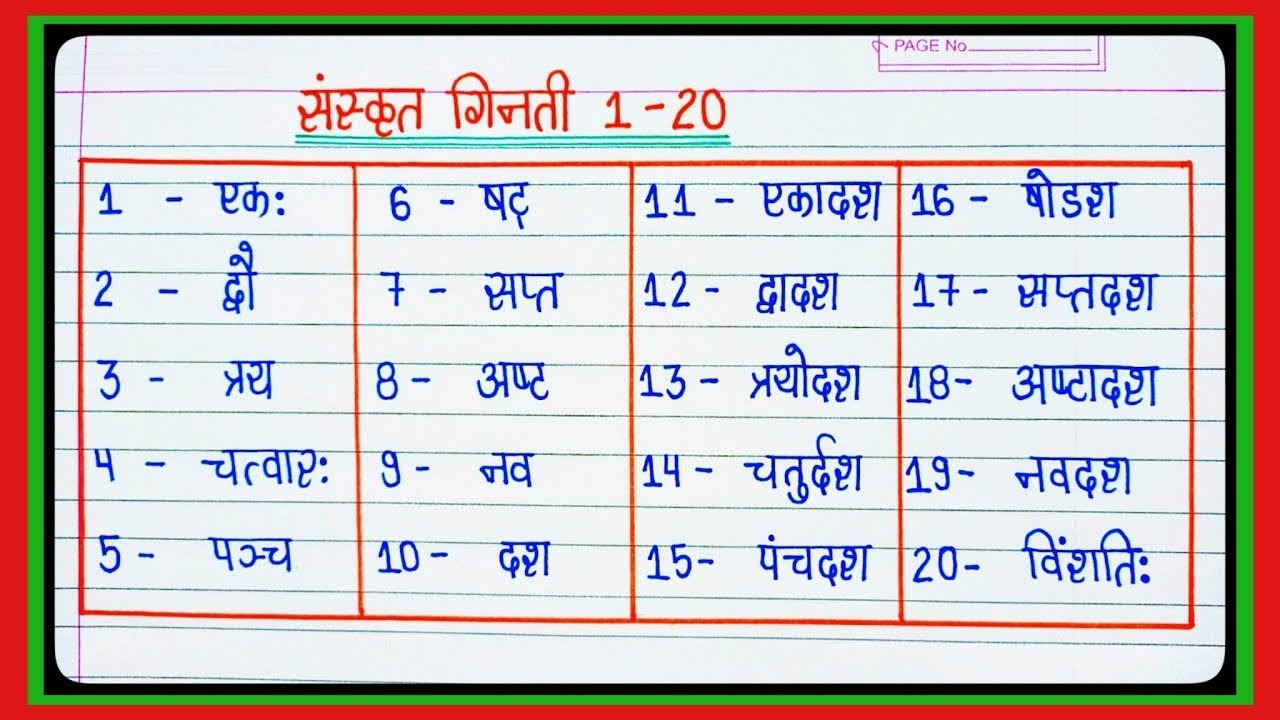 PAGE No
संस्कृत गिनती 1-20
1 - एक: 6 - षट् 11 - एकादश 16 - षोडश
2 - द्वौ 7 - सप्त 12 - द्वादश 17 - सप्तदश
3 - त्रय 8 - अष्ट 13 - त्रयोदश 18 - अष्टादश
4 - चत्वार: 9 - नव 14 - चतुर्दश 19 - नवदश
5 - पञ्च 10 - दश 15 - पंचदश 20 - विंशति: